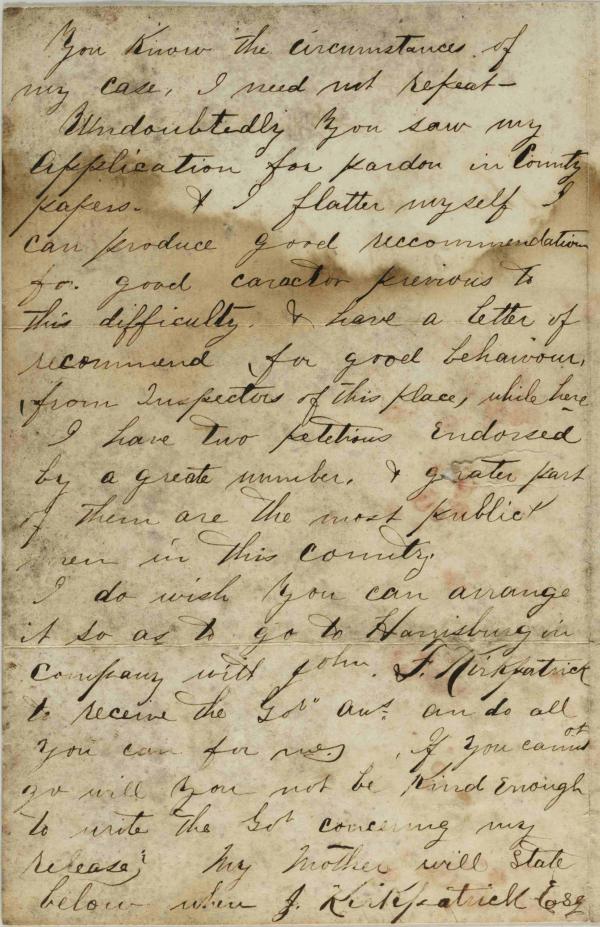 You Know the circumstances of
my case, I need not repeat—
Undoubtedly You saw my
Application for pardon in County
papers. & I flatter myself I
can produce good reccommendation
for. good caractor previous to
this difficulty. & have a letter of
recommend for good behaviour,
from Inspectors of this place, while here
I have two petetions Endorsed
by a greate number. & grater part
of them are the most public
men in this country.
I do wish You can arrange
it so as to go to Harrisburg in
company with John. F. Kirkpatrick
to receive the Gov" Ans. an do all
You can for me, If You cannot
go will You not be Kind Enough
to write the Gov concerning my
release; My Mother will State
below when J. Kirkpatrick Esq